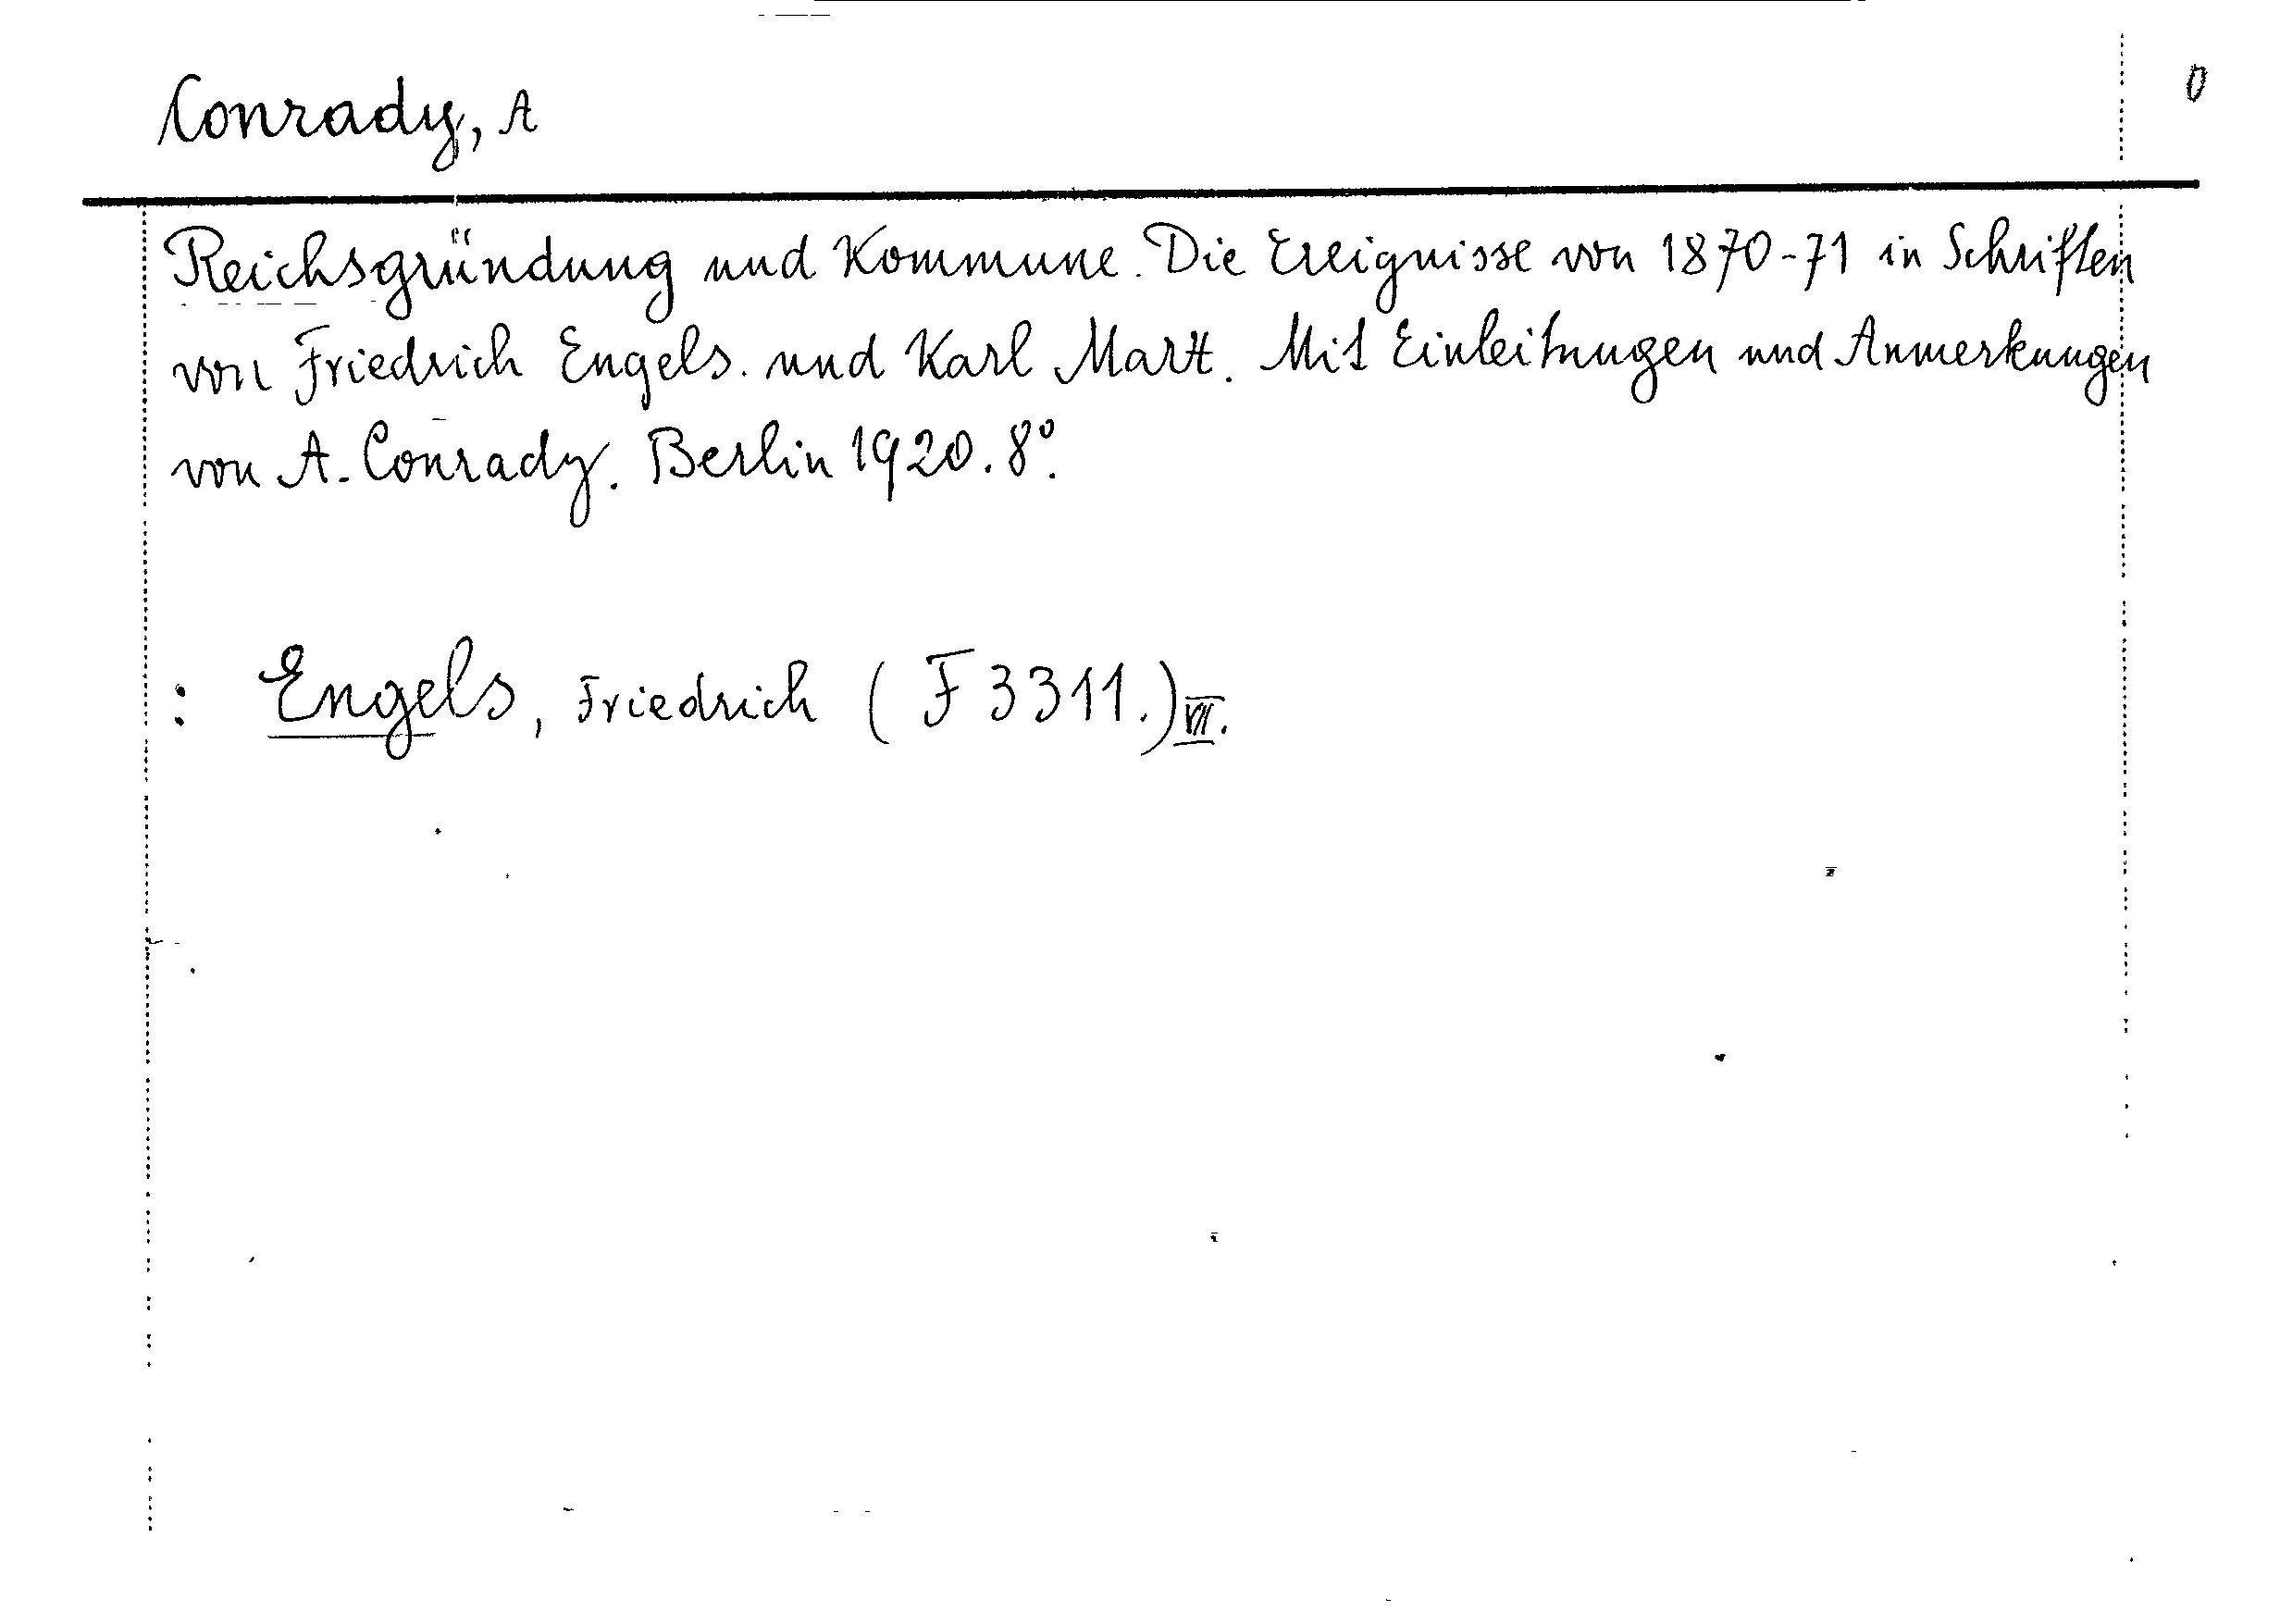 Conrady, A
0
Reichsgründung und Kommune. Die Ereignisse von 1870-71 in Schriften
von Friedrich Engels. und Karl Marx. Mit Einleitungen und Anmerkungen
von A. Conrady. Berlin 1920. 8°.
: Engels, Friedrich (F 3311.) VII.